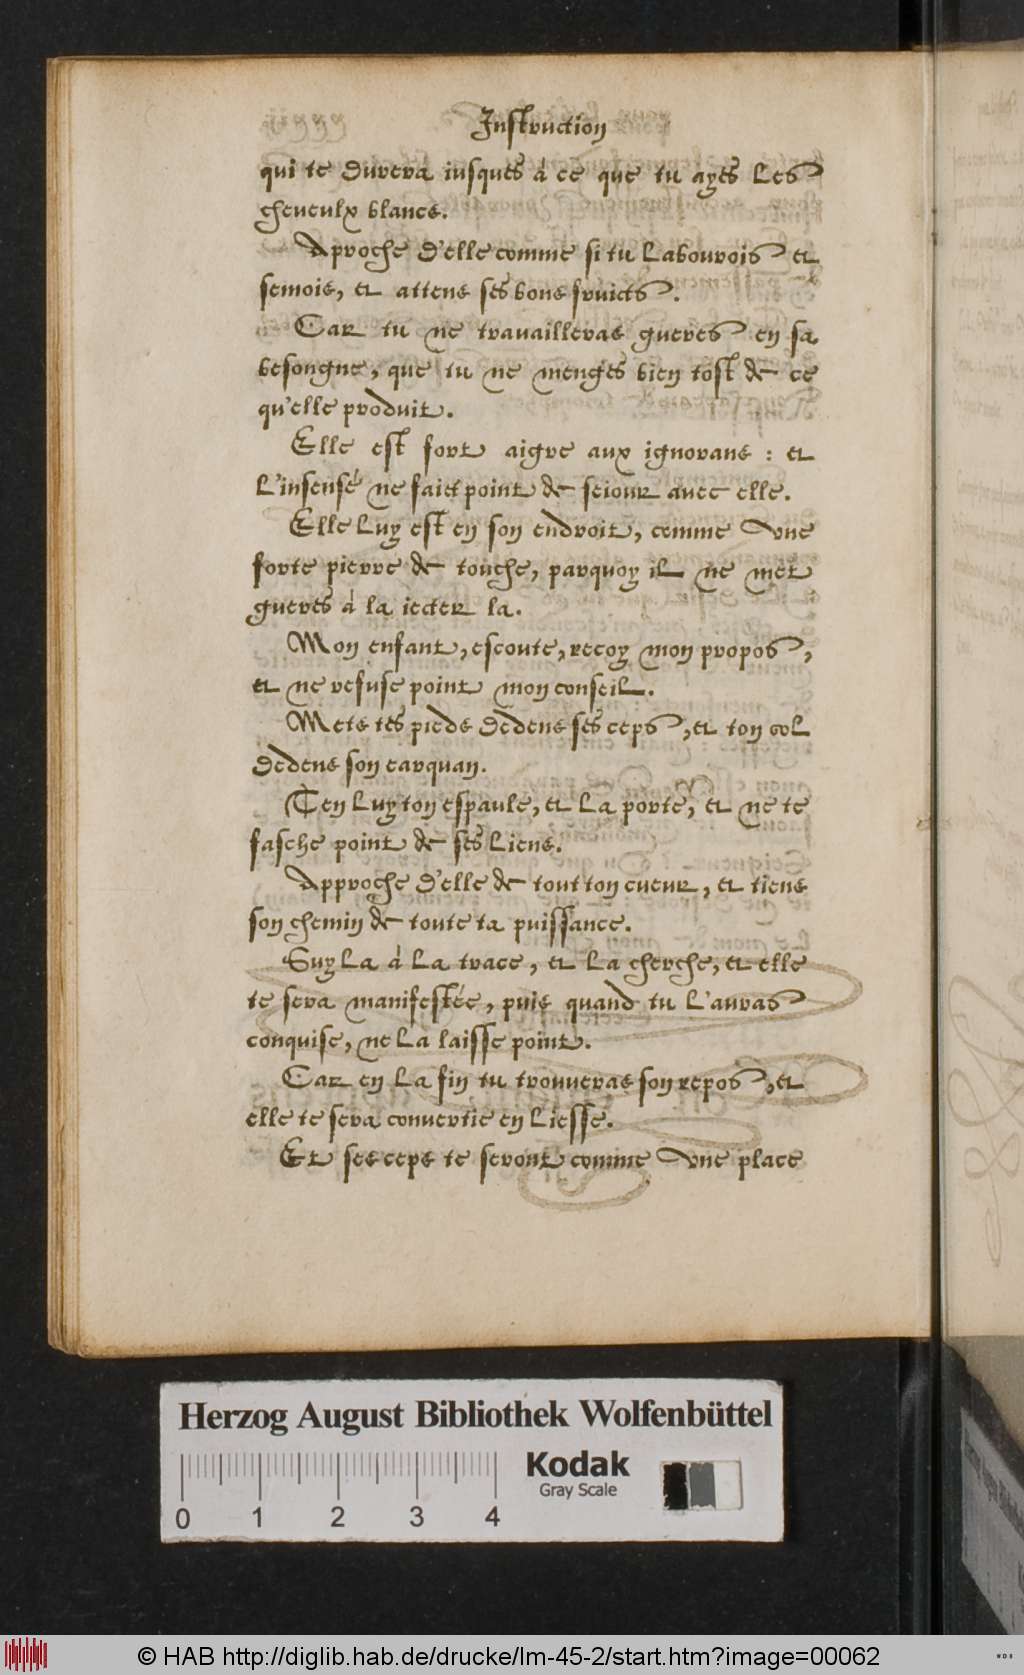 Instruction
qui te durera iusques à ce que tu ayes les
cheueulx blancs.
Aproche d'elle comme si tu labourois et
semois, et attens ses bons fruicts.
Car tu ne travailleras gueres en sa
besongne, que tu ne menges bien tost de ce
qu'elle produit.
Elle est fort aigre aux ignorans : et
l'insensé ne faict point de seiour avec elle.
Elle luy est en son endroit, comme une
forte pierre de touche, parquoy il ne met
gueres à la iecter la.
Mon enfant, escoute, recoy mon propos,
et ne refuse point mon conseil.
Mets tes pieds dedens ses ceps, et ton col
dedens son carquan.
Ten luy ton espaule, et la porte, et ne te
fasche point de ses liens.
Approche d'elle de tout ton cueur, et tiens
son chemin de toute ta puissance.
Suy la à la trace, et la cherche, et elle
te sera manifestée, puis quand tu l'auras
conquise, ne la laisse point.
Car en la fin tu trouueras son repos, et
elle te sera convertie en liesse.
Et ses ceps te seront comme une place
Herzog August Bibliothek Wolfenbüttel
Kodak
Gray Scale
0 1 2 3 4
© HAB http://diglib.hab.de/drucke/lm-45-2/start.htm?image=00062